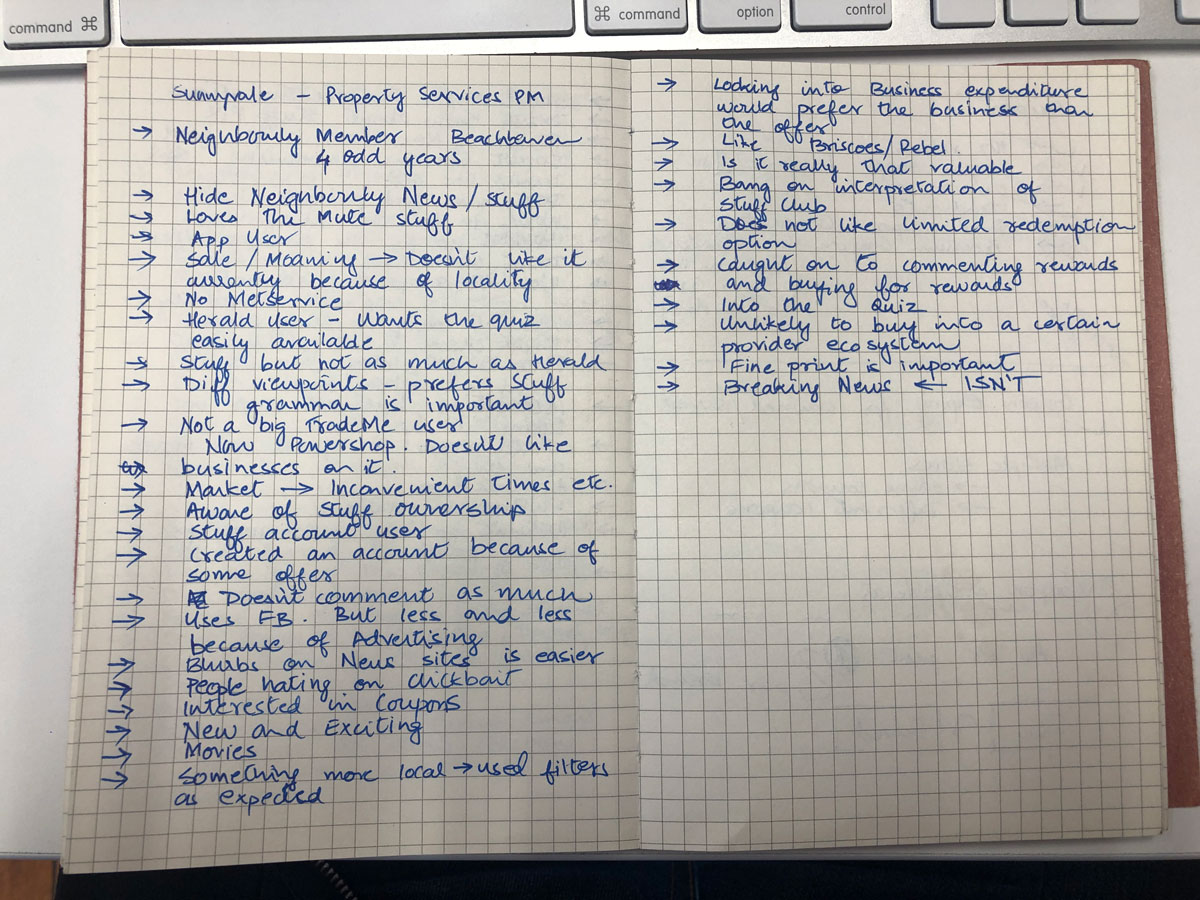 command ⌘
⌘ command
option
control
Sunnyvale – Property Services PM
→ Neighbourly Member Beachhaven
4 odd years
→ Hide Neighbourly News / stuff
→ Loves the Mute stuff
→ App User
→ Sale / Moaning → Doesn't like it
currently because of locality
→ No Metservice
→ Herald user – Wants the quiz
easily available
→ Stuff but not as much as Herald
→ Diff viewpoints – prefers Stuff
grammar is important
→ Not a big TradeMe user
Now Powershop. Doesn't like
businesses on it.
→ Market → Inconvenient times etc.
→ Aware of Stuff ownership
→ Stuff account user
→ Created an account because of
some offer
→ Doesn't comment as much
→ Uses FB. But less and less
because of Advertising
→ Blurbs on News sites is easier
→ People hating on clickbait
→ Interested in Coupons
→ New and Exciting
→ Movies
→ Something more local → used filters
as expected
→ Looking into Business expenditure
would prefer the business than
the offer
→ Like Briscoes/Rebel.
→ Is it really that valuable
→ Bang on interpretation of
Stuff Club
→ Does not like limited redemption
option
→ caught on to commenting rewards
and buying for rewards
→ Into the Quiz
→ Unlikely to buy into a certain
provider ecosystem
→ Fine print is important
→ Breaking News ← ISN'T